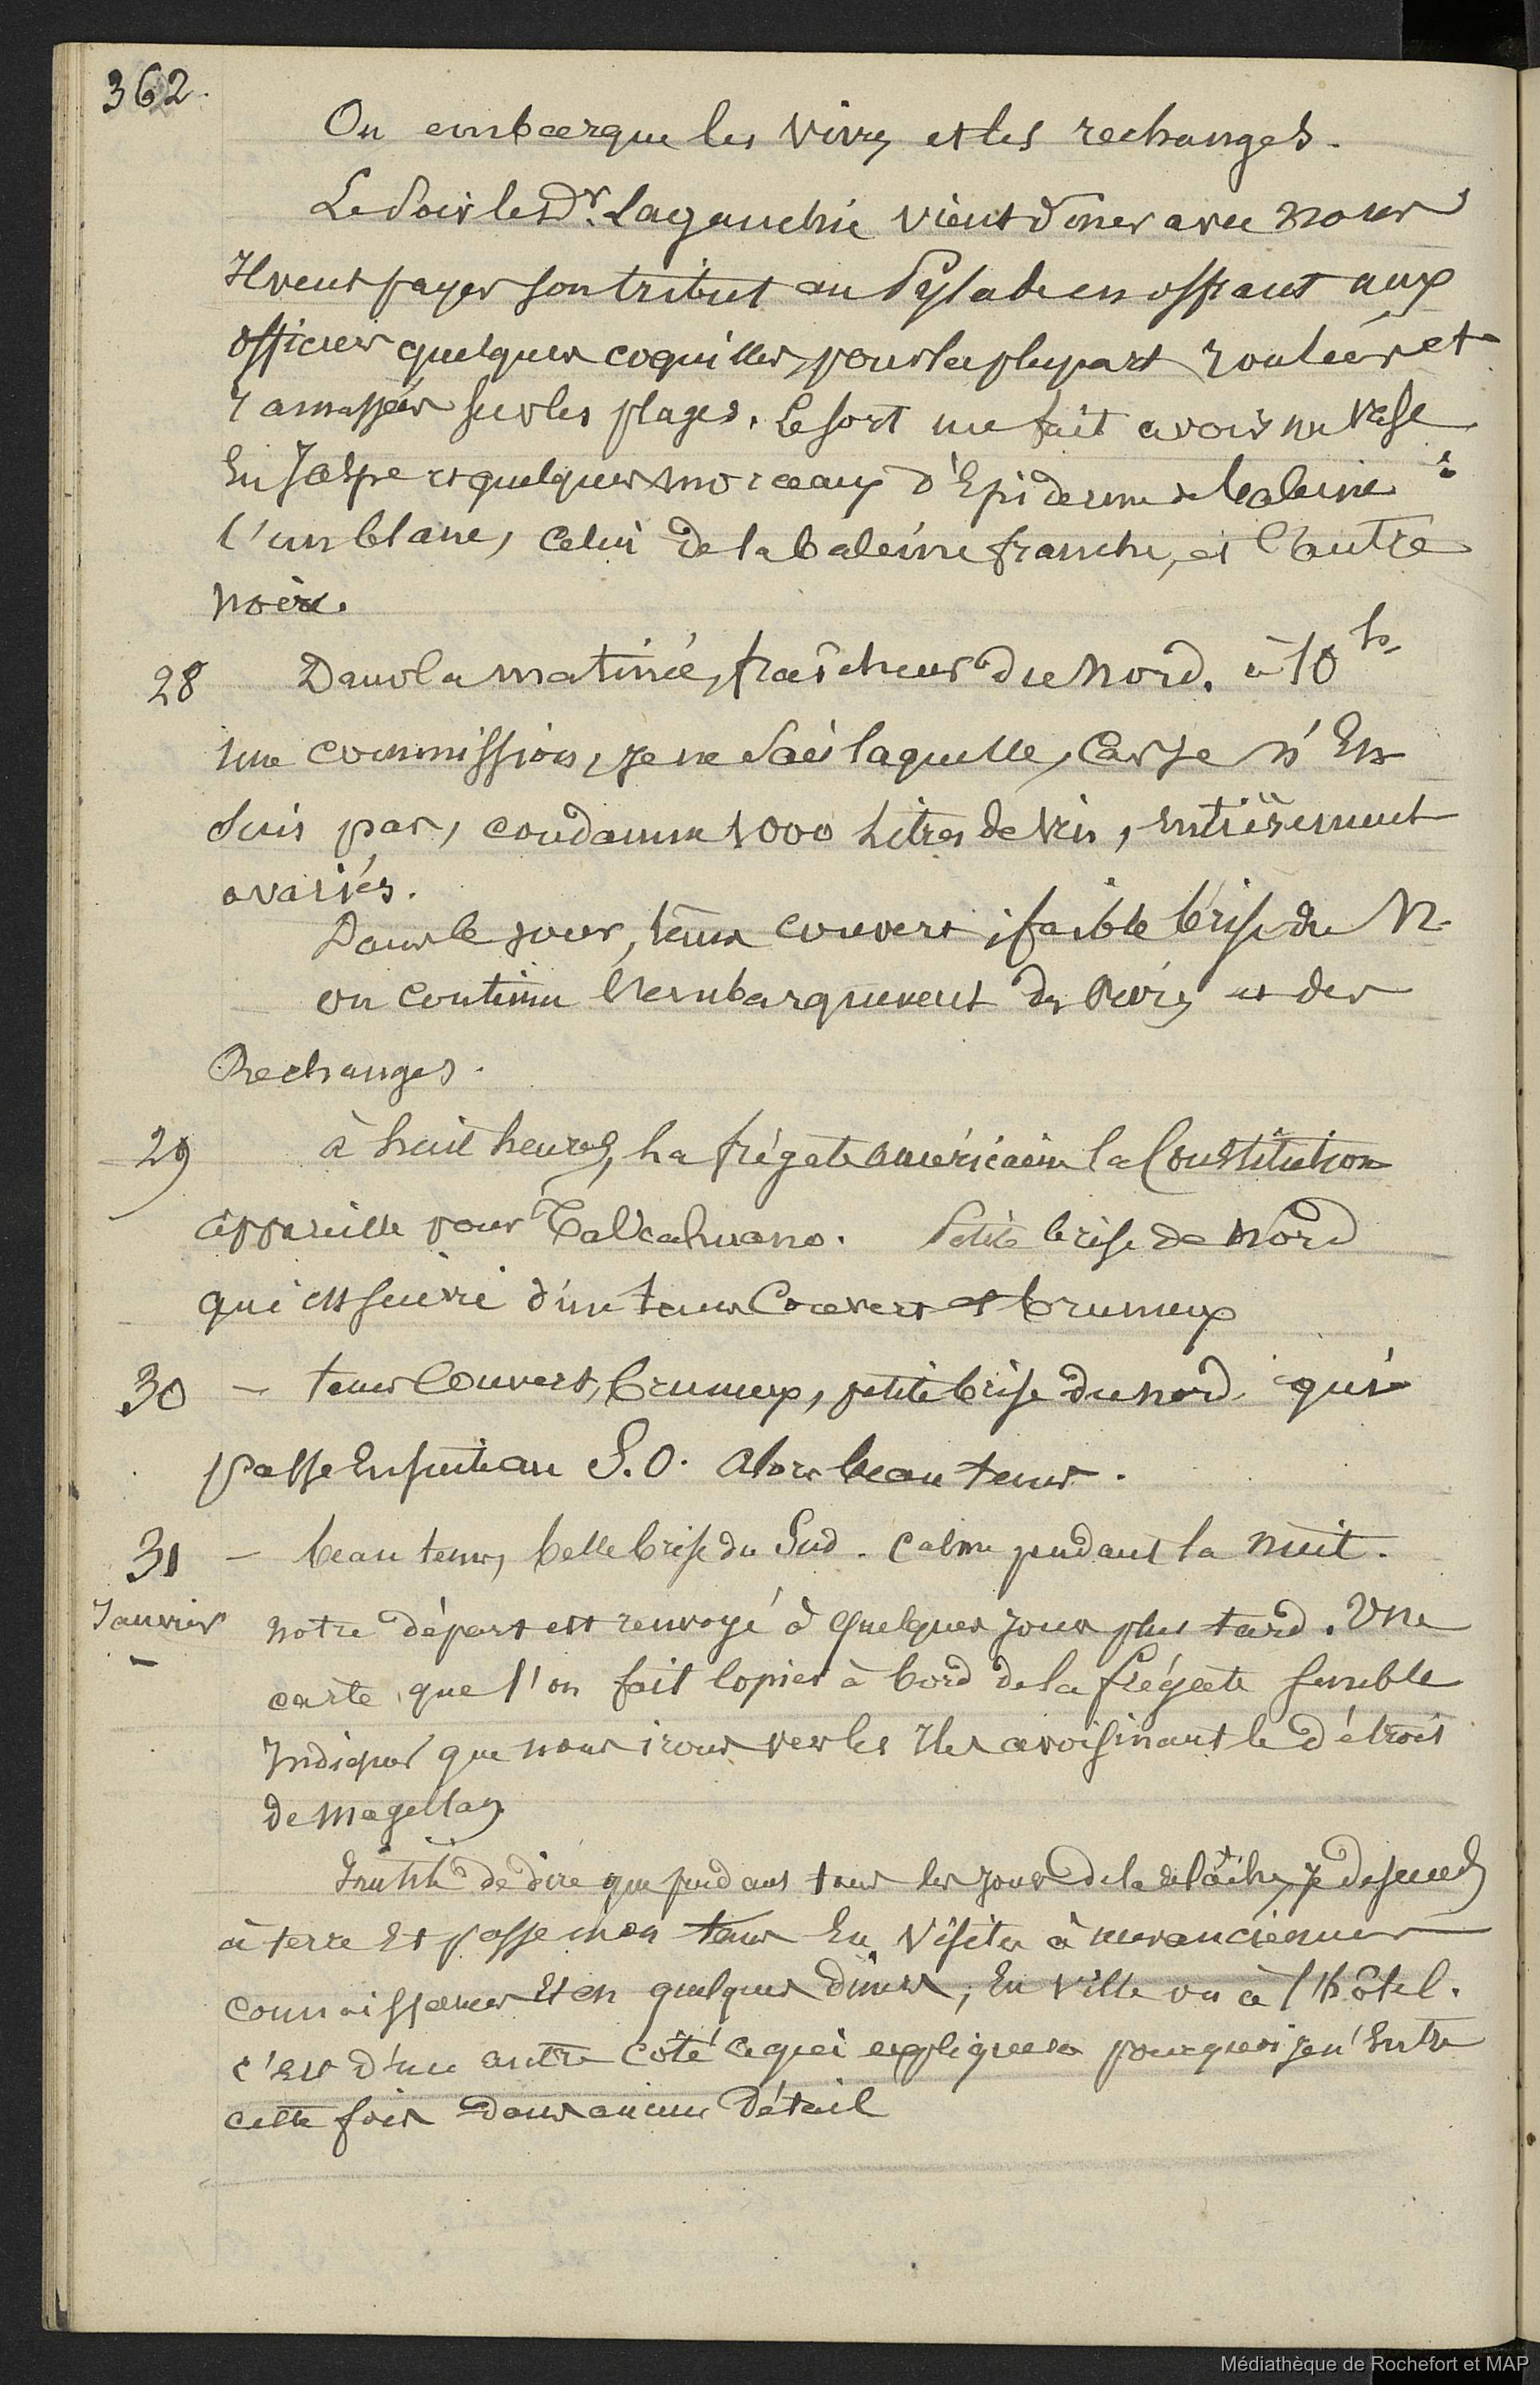 362.
On embarque les vivres et les rechanges.
Le Soir le Dr. Lagauchie vient dîner avec nous
Il veut payer son tribut au Pylade en offrant aux
officiers quelques coquilles, pour la plupart roulées et
ramassées sur les plages. Le sort me fait avoir un vase
En Jaspe et quelques morceaux d'Epiderme de baleine :
l'un blanc, celui de la baleine franche, et l'autre
noir.
28 Dans la matinée, fraîcheur du Nord. à 10 h.
une commission, je ne sais laquelle, car je n'En
suis pas, condamne 1000 Litres de vin, entièrement
avariés.
Dans le jour, tems couvert ; faible brise du N.
on continue l'embarquement des vivres et des
Rechanges.
29 à huit heures, La frégate américaine la Constitution
appareille pour Talcahuano. Petite brise de Nord
qui est suivie d'un tems Couvert et brumeux
30 – tems Couvert, brumeux, petite brise du nord qui
passe Ensuite au S.O. alors beau tems.
31 – beau tems, belle brise du Sud. Calme pendant la nuit.
Janvier notre départ est renvoyé à quelques jours plus tard. Une
– carte que l'on fait copier à bord de la frégate semble
Indiquer que nous irons vers les Iles avoisinant le détroit
de Magellan
Inutile de dire que pendant tous les jours de la relâche, je descends
à terre Et passe mon tems En visites à mes anciennes
connaissances Et en quelques dîners, En ville ou à l'hôtel.
c'est d'un autre côté ce qui expliquera pourquoi je n'entre
cette fois dans aucun détail
Médiathèque de Rochefort et MAP